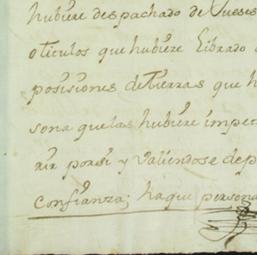 hubiere despachado de Jueses
o ticulos que hubiere Librado
posisiones de tierras que h
sona que las hubiere impet
rir por si y Valiendose de p
confianza; haque persona